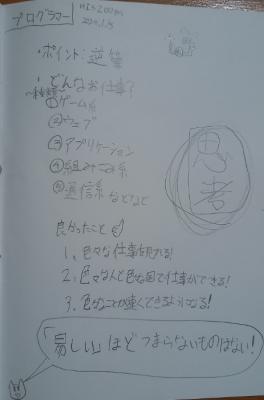 プログラマー
・ポイント: 逆算
・どんなお仕事?
〜種類〜
①ゲーム系
②ウェブ
③アプリケーション
④組みこみ系
⑤通信系などなど
思考
良かったこと
1、色々な仕事を見れる!
2、色々な人と色々な国で仕事ができる!
3、色々なことが速くできるようになる!
「易しい」ほどつまらないものはない!